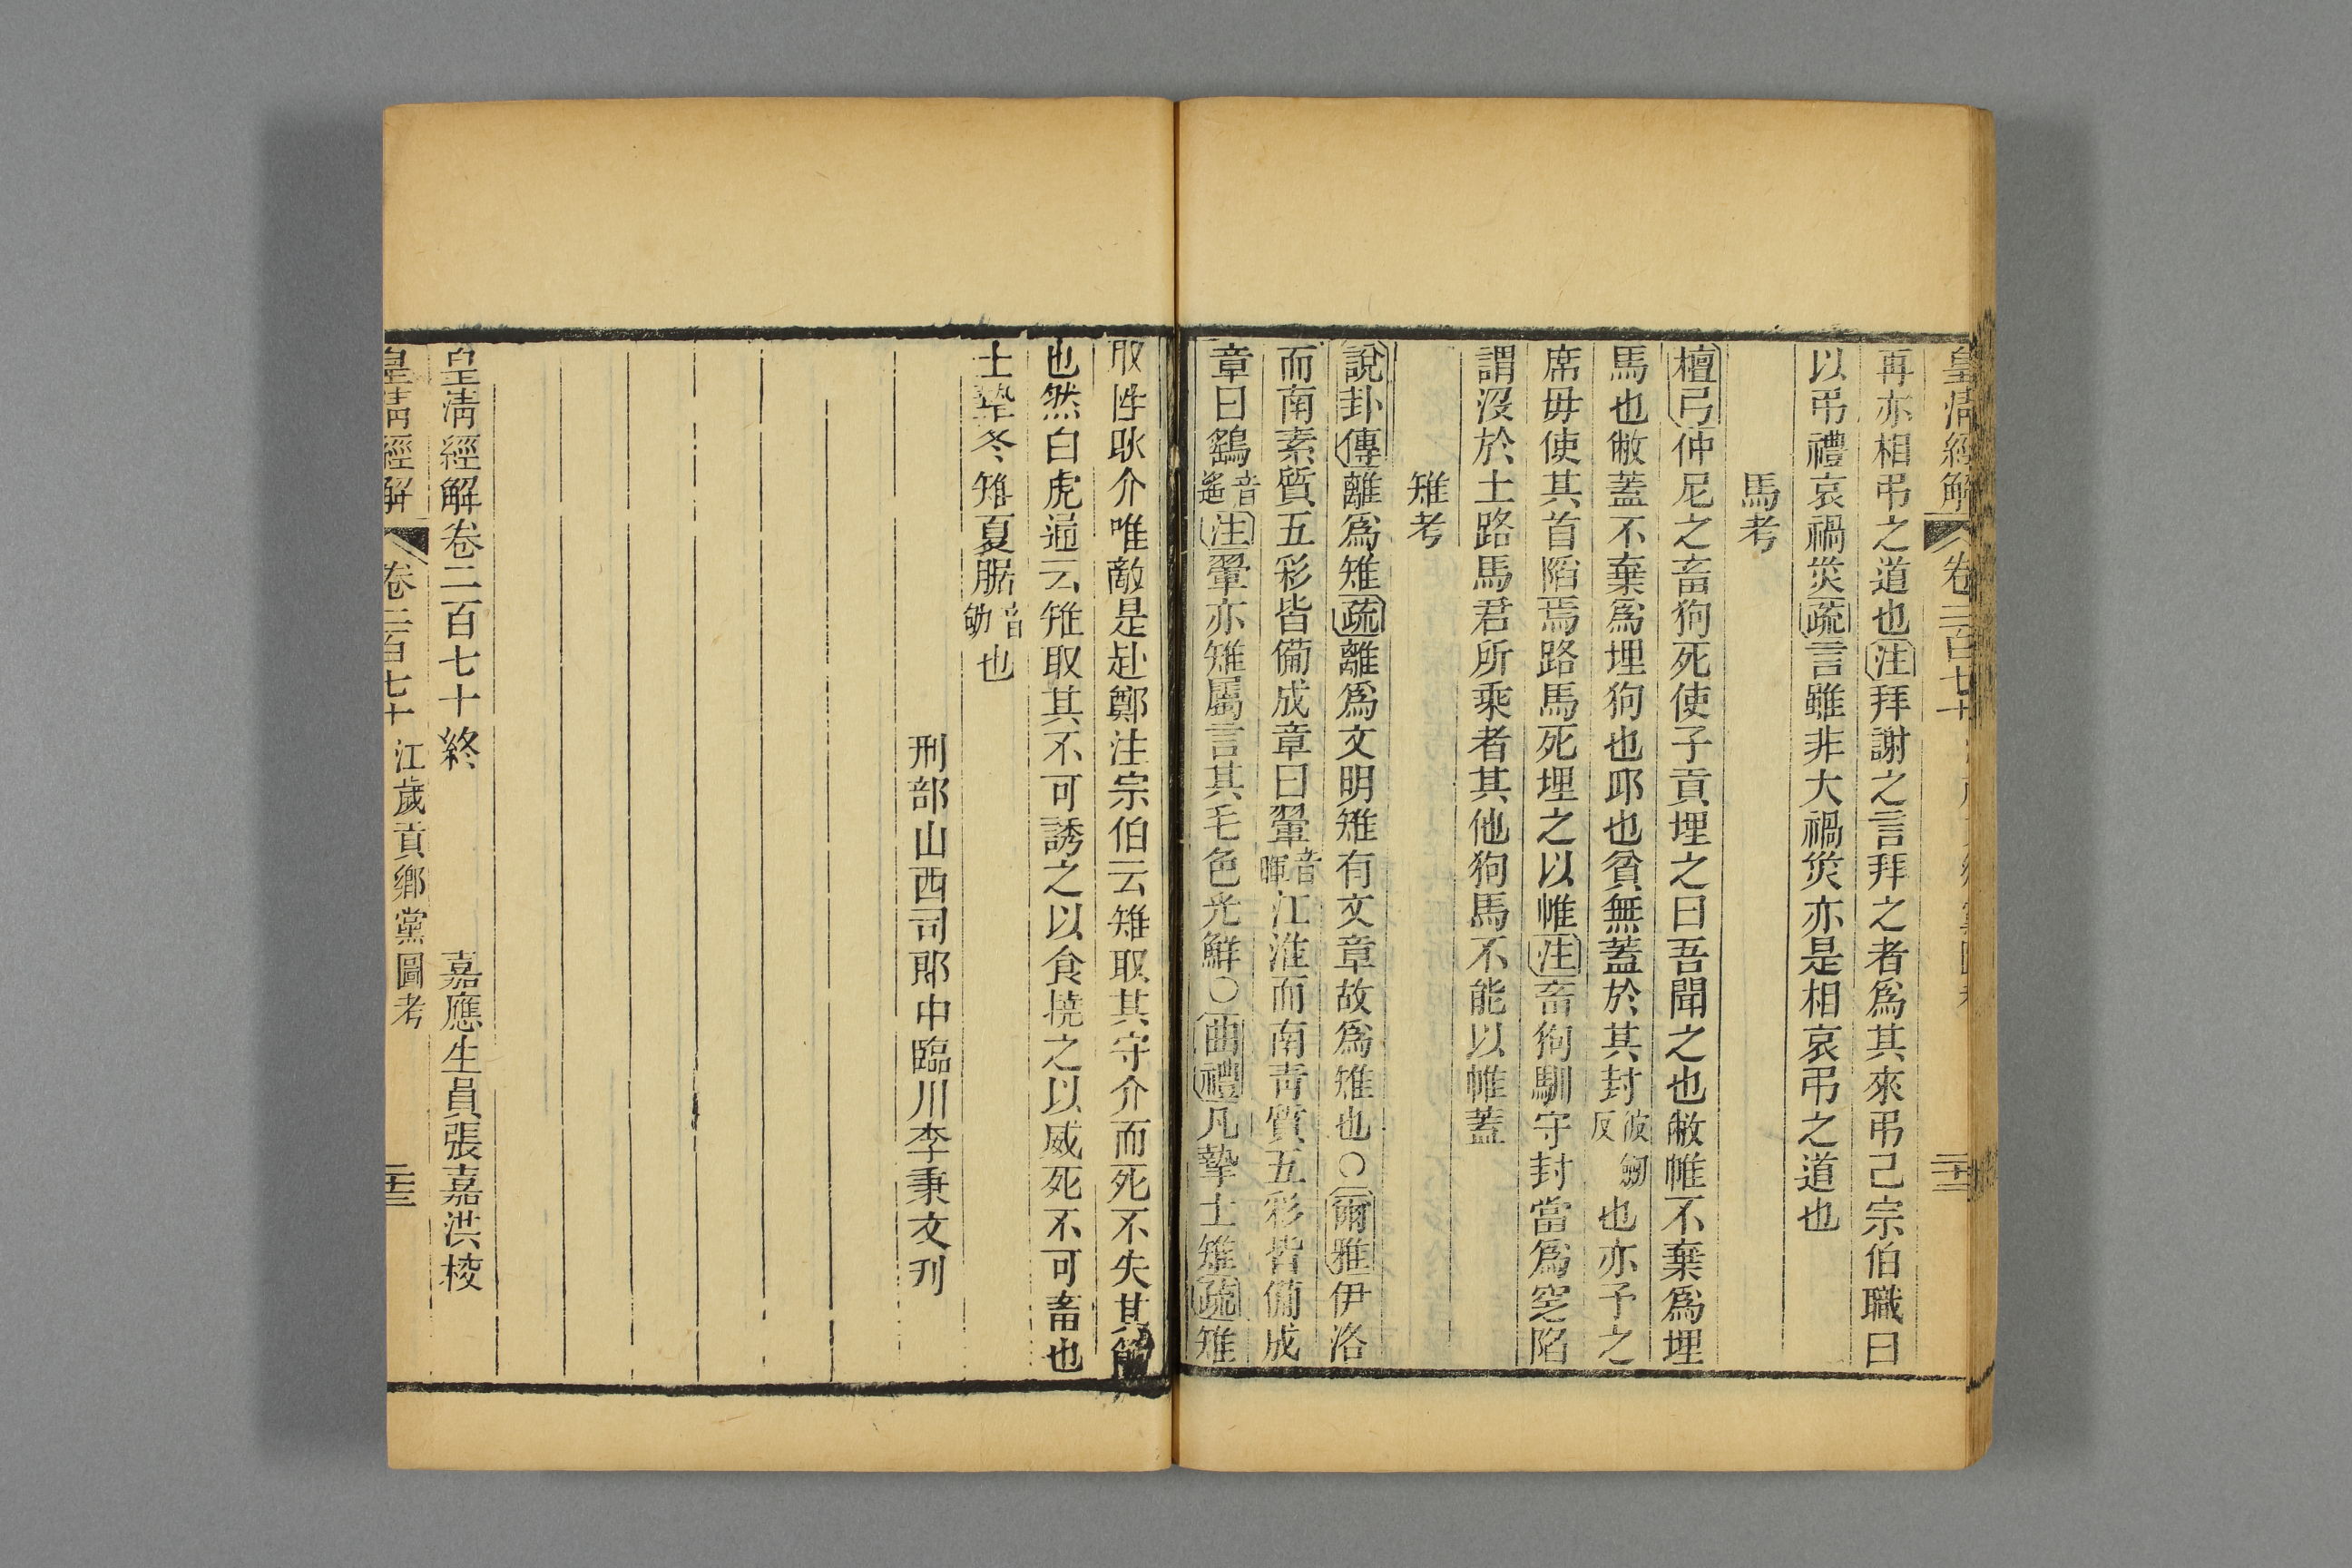 皇清經解 卷二百七十
再亦相弔之道也注拜謝之言拜之者爲其來弔己宗伯職曰
以弔禮哀禍烖疏言雖非大禍烖亦是相哀弔之道也
馬考
檀弓仲尼之畜狗死使子貢埋之曰吾聞之也敝帷不棄爲埋
馬也敝蓋不棄爲埋狗也邱也貧無蓋於其封彼劒反也亦予之
席毋使其首陷焉路馬死埋之以帷注畜狗馴守封當爲窆陷
謂沒於土路馬君所乘者其他狗馬不能以帷蓋
雉考
說卦傳離爲雉疏離爲文明雉有文章故爲雉也○爾雅伊洛
而南素質五彩皆備成章曰翬音暉江淮而南青質五彩皆備成
章曰鷂音遙注翬亦雉屬言其毛色光鮮○曲禮凡摯士雉疏雉
取性耿介唯敵是赴鄭注宗伯云雉取其守介而死不失其節
也然白虎通云雉取其不可誘之以食撓之以威死不可畜也
士摯冬雉夏腒音劬也
刑部山西司郎中臨川李秉文刋
皇清經解卷二百七十終 嘉應生員張嘉洪校
皇清經解 卷二百七十 江歲貢鄉黨圖考 三十二